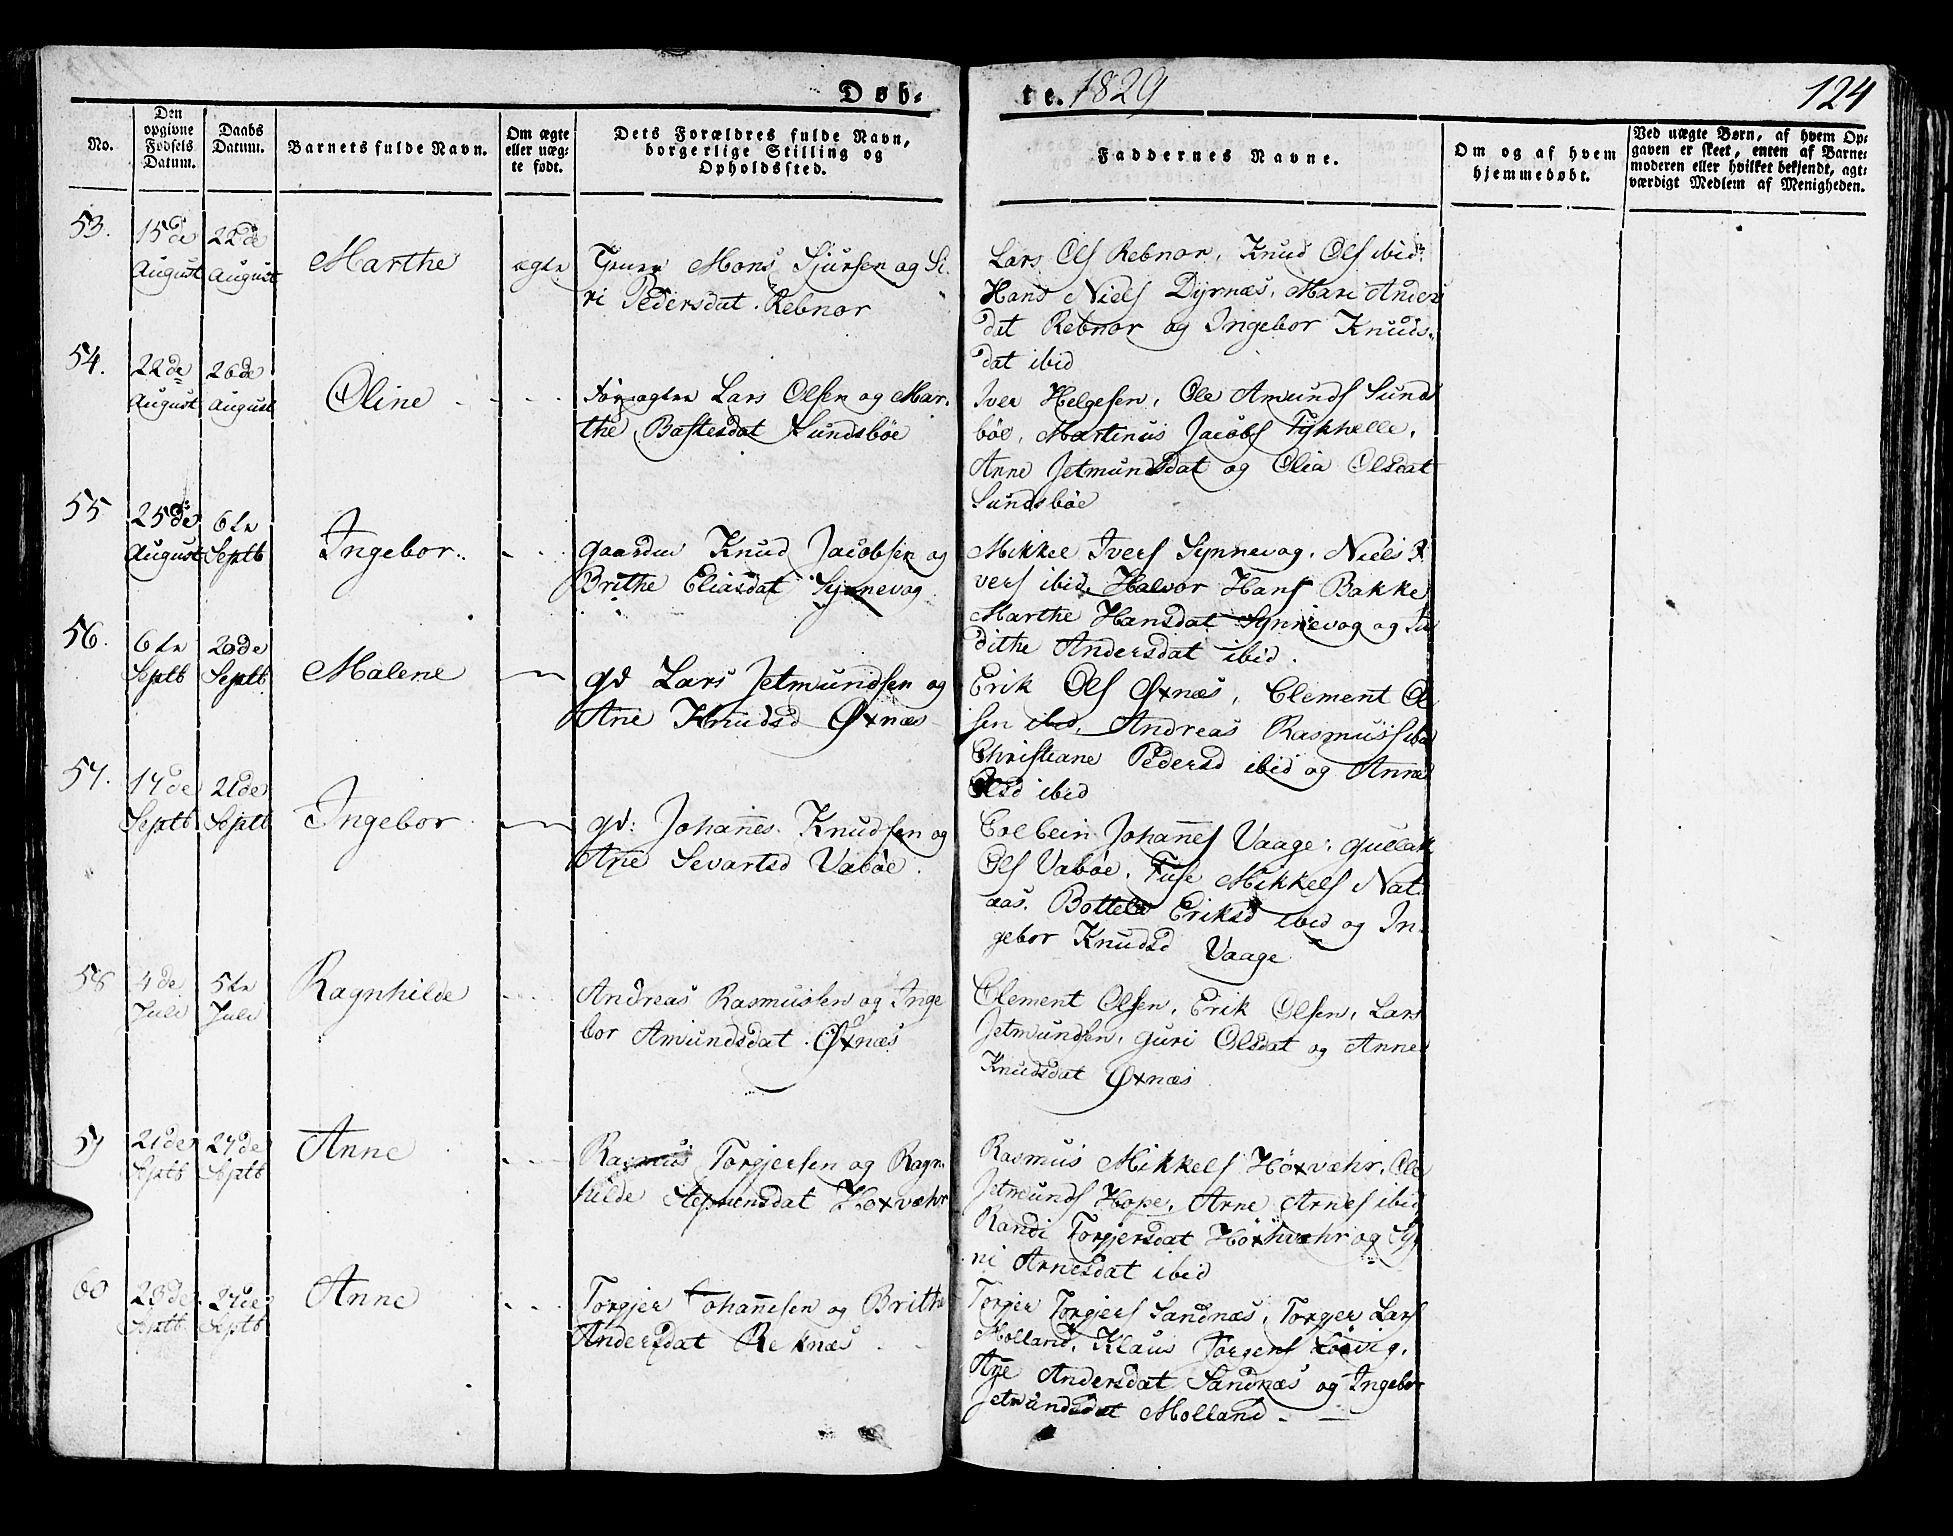 Døb-
te. 1829
124
No.
Den opgivne Fødsels Datum.
Daabs Datum.
Barnets fulde Navn.
Om ægte eller uægte født.
Dets Forældres fulde Navn, borgerlige Stilling og Opholdssted.
Faddernes Navne.
Om og af hvem hjemmedøbt.
Ved uægte Børn, af hvem Opgaven er skeet, enten af Barnemoderen eller hvilket bekjendt, agtværdigt Medlem af Menigheden.
53.
15de August
22de August
Marthe
ægte
Mons Sjursen og Si-
ri Pedersdat. Rebnor
Lars Ols Rebnor, Knud Ols ibid.
Hans Niels Dyrnæs, Mari Anders
dat Rebnor og Ingebor Knuds-
dat ibid
54.
22de August
26de August
Oline
Lars Olsen og Mar-
the Bastesdat Sundsbøe
Iver Helgesen, Ole Amunds Sunds
bøe, Martinus Jacobs Tykhelle,
Anne Jetmundsdat og Olia Olsdat
Sundsbøe
55
25de August
6te Septb
Ingebor
gaardm Knud Jacobsen og
Brithe Eliasdat Synnevog
Mikkel Ivers Synnevog, Niels I
vers ibid, Halvor Hans Bakke
Marthe Hansdat Synnevog og Ju
dithe Andersdat ibid.
56.
6te Septb
20de Septb
Malene
gd Lars Jetmundsen og
Ane Knudsd Øxnæs
Erik Ols Øxnæs, Clement Ol
sen ibid, Andreas Rasmuss ibid
Christiane Pedersd ibid og Anne
Olsd ibid
57.
17de Septb
21de Septb
Ingebor
gd: Johannes Knudsen og
Ane Sevartsd Vabøe.
Colbein Johannes Vaage, Gullak
Ols Vabøe, Mikkels Nat-
aas. Botteld Eriksd ibid og In-
gebor Knudsd Vaage
58
4de Juli
5te Juli
Ragnhilde
Andreas Rasmussen og Inge
bor Amundsdat. Øxnæs
Clement Olsen, Erik Olsen, Lars
Jetmundsen, Guri Olsdat og Anne
Knudsdat Øxnæs
59
21de Septb
27de Septb
Anne
Rasmus Torgjersen og Ragn-
hilde Stephensdat Høxvæhr
Rasmus Mikkels Høxvæhr, Ole
Jetmunds Hope, Arne Arnes ibid
Randi Torgjersdat Høxhvæhr og Sy
ni Arnesdat ibid
60
23de Septb
27de Septb
Anne
Torgjer Johannesen og Brithe
Andersdat Reknæs
Torgjer Torgjers Sandnæs, Torgjer Lars
Molland, Klaus Jørgens
Ane Andersdat Sandnæs og Ingebor
Jetmundsdat Molland